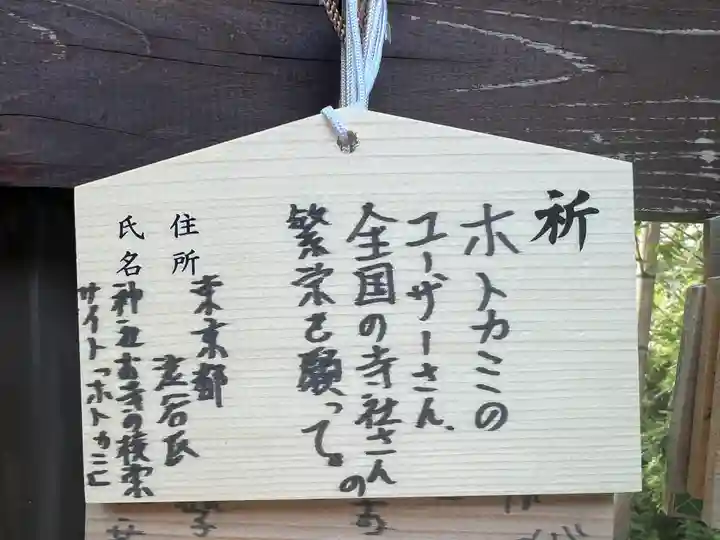 祈
ホトカミの
ユーザーさん、
全国の寺社さんの
繁栄を願って。
住所 東京都
氏名 神社お寺の検索
サイト「ホトカミ」